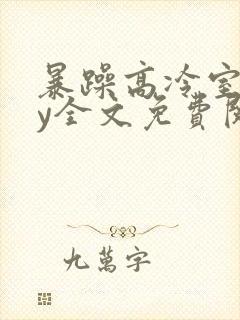 暴躁高冷室
y全文免費
九萬字